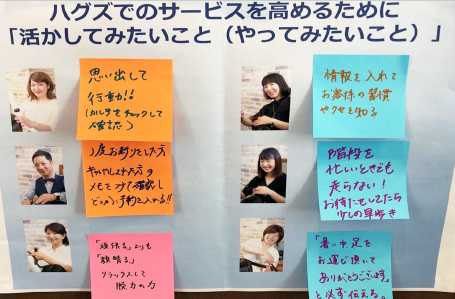 ハグズでのサービスを高めるために
「活かしてみたいこと（やってみたいこと）」
思い出して
行動!!
(カルテをチェックして
確認)
情報を入れて
お客様の習慣
やクセを知る
1度お断りした方
キャンセルされた方の
メモを で確認し
予約を入れる!!
階段を
忙しいときでも
走らない!
お待たせしてたら
少しの早歩き
「頑張る」よりも
「顔晴る」
リラックスして
脱力の力
「暑い中足を
お運び頂いて
ありがとうございます」
と必ず伝える。